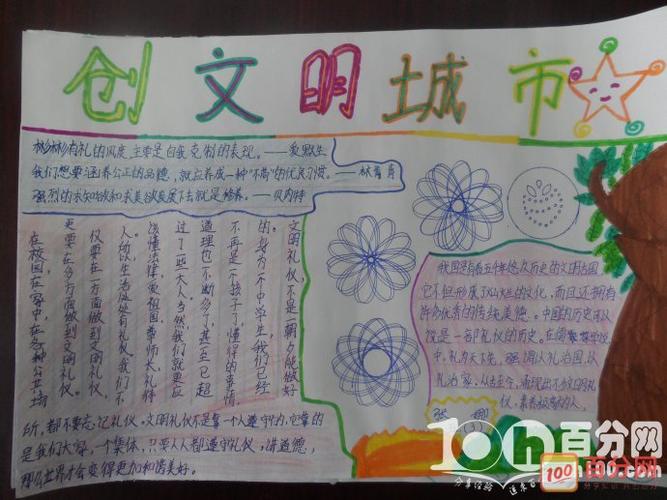 创文明城市
彬彬有礼的风度,主要是自我克制的表现。——爱默生
我们想要涵养公正的品德,就应养成一种"不高"的优良习惯。——林青青
强烈的求知欲和求美欲发展下去就是修养。——贝内特
文明礼仪,不是一朝夕能做好
的。身为一个中学生,我们已经
不再是一个孩子了,懂得的事情
道理也不断多了,甚至已超
过了一些大人。当然,我们就更应
该懂法律,爱祖国,尊师长,礼待
人。所以生活处处有礼仪,我们不
仅要在一方面做到文明礼仪,
更要在多方面做到文明礼仪。
在校园,在家中,在各种公共场
所,都不要忘记礼仪。文明礼仪不是靠一个人遵守的,它靠的
是我们大家,一个集体,只要人人都遵守礼仪,讲道德,
那么世界才会变得更加和谐美好。
我国是有着五千年悠久历史的文明古国,
它不但形成了灿烂的文化,而且还拥有
许多优秀的传统美德。中国的历史可以
说是一部礼仪的历史。在儒家学说
中,礼为天下先,强调以礼治国,以
礼治家,从古至今,涌现出不少以明礼
仪,素养极高的人。
10h百分网
h100.com
分享经验
100 百分网